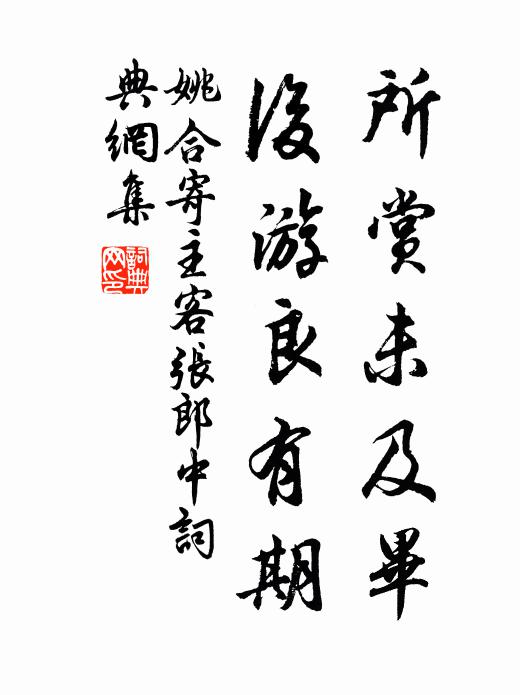 所赏未及畢
後游良有期
姚合寄主客張郎中詞
典網集
詞典
网印